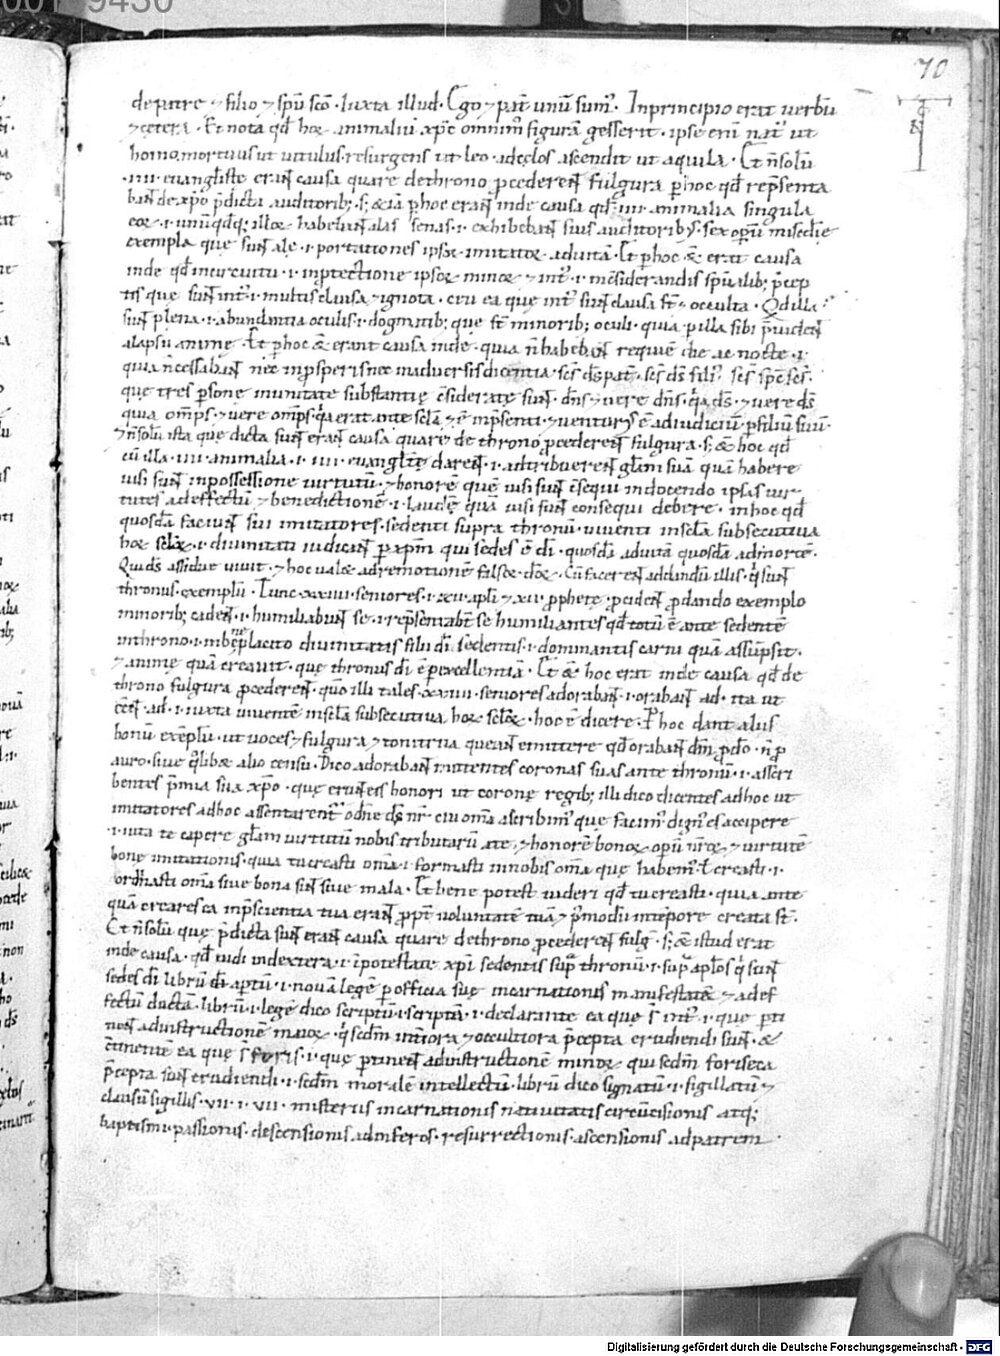 70
de patre ⁊ filio ⁊ spū scō · Iuxta illud · Ego ⁊ pat̄ unū sum᾽ · In principio erat uerbū
⁊ cetera · Et nota qđ hoꝝ animaliū xp̄c omnium figurā gesserit · ipse enī nat᾽ ut
homo mortuus ut uitulus · resurgens ut leo · ad cęlos ascendit ut aquila · Et n̄ solū
· iiii · euangl̄iste erant causa quare de throno p̄cederent fulgura p̄ hoc qđ rep̄senta
bant de xp̄o p̄dicta auditorib; · s; & iā p̄ hoc erant inde causa qđ · iiii · animalia singula
eoꝝ · i · unū qđq; illoꝝ habebant alas senas · i · exhibebant suis auditorib; sex opū misc̄die
exempla que sunt ale · i · portationes ipsoꝝ imitatoꝝ ad uitā · Et p̄ hoc & erat causa
inde qđ in circuitu · i · in p̄tectione ipsoꝝ minoꝝ ⁊ int᾽ · i · in c̄siderandis sp̄ualib; p̄cep
tis que sunt int᾽ · i · multis clausa ⁊ ignota · ceu ea que int᾽ sunt clausa st̄ ⁊ occulta · Qđ illa
sunt plena · i · abundantia oculis · i · dogmatib; que st̄ minorib; oculi · quia p̄ illa sibi p̄uident
a lapsu animę · Et p̄ hoc & erant causa inde · quia n̄ habebant requiē die ac nocte · i ·
quia n̄ cessabant nec in prosperis nec in aduersis dicentia · sc̄s ds̄ pat̄ · sc̄s ds̄ fili᾽ · sc̄s sp̄c sc̄s ·
que tres p̄sone in unitate substantię c̄siderate sunt · dn̄s ⁊ uere dn̄s · q̄a ds̄ · ⁊ uere ds̄
quia omp̄s · ⁊ uere omp̄s · q̄a erat ante sc̄la ⁊ ē in p̄senti · ⁊ uentur᾽ ē ad iudiciū p̄ filiū suū ·
⁊ n̄ solū ista que dicta sunt erant causa quare de throno p̄cederent fulgura · s; & hoc qđ
cū illa · iiii · animalia · i · iiii · euangl̄iste darent · i · adtribuerent glam suā quā habere
uisi sunt in possessione uirtutū · ⁊ honorē quē uisi sunt c̄sequi in docendo ipsas uir
tutes ad effectū ⁊ benedictionē · i · laudē quā uisi sunt consequi debere · in hoc qđ
quosdā faciunt sui imitatores · sedenti supra thronū · uiuenti in sc̄la subsecutiua
hoꝝ sc̄loꝝ · i · diuinitati iudicanti p̄ xp̄m qui sedes ē di · quosdā ad uitā quosdā ad mortē ·
Qui ds̄ assidue uiuit · ⁊ hoc ualet ad remotionē falsoꝝ doꝝ · Cū facerent ad dandū illis · q̄ sunt
thronus · exemplū · Tunc xxiiii · seniores · i · xii · apl̄i ⁊ xii · p̄phetę · p̄cident p̄ dando exemplo
minorib; cadent · i · humiliabunt se · i · rep̄sentabt̄ se humiliantes qđ totū ē ante sedentē
in throno · i · in beneplacito diuinitatis filii di · sedentis · i · dominantis carni quā assūpsit ·
⁊ animę quā creauit · que thronus di ē p̄ excellentiā · Et & hoc erat inde causa qđ de
throno fulgura p̄cederent · quō illi tales · xxiiii · seniores adorabant · i · orabant ad · ita ut
· ad · i · iuxta uiuentē in sc̄la subsecutiua hoꝝ sc̄loꝝ · hoc ē dicere · P hoc dant aliis
bonū exēplū · ut uoces ⁊ fulgura ⁊ tonitrua queant emittere qđ orabant dm̄ p̄ do · n̄ p̄
auro · siue q̄libet alio censu · Dico adorabant mittentes coronas suas ante thronū · i · asscri
bentes p̄mia sua xp̄o · que erunt eis honori ut coronę regib; illi dico dicentes ad hoc ut
imitatores ad hoc assentarent᾽ o dn̄e ds̄ nr̄ cui oma ascribim᾽ que facim᾽ dign᾽ es accipere
· i · iuta te capere glam uirtutū nobis tributarū a te · ⁊ honorē bonoꝝ opū nr̄oꝝ ⁊ uirtutē
bonę imitationis · quia tu creasti oma · i · formasti in nobis oma que habem᾽ · t creasti · i ·
ordinasti oma siue bona sint siue mala · Et bene potest uideri qđ tu creasti · quia ante
quā crearet ea in p̄scientia tua erant p̄pt᾽ uoluntatē tuā ⁊ p̄ modū in tēpore creata st̄ ·
Et n̄ solū que p̄dicta sunt erant causa quare de throno p̄cederent fulḡ · s; & istud erat
inde causa · qđ uidi in dextera · i · in potestate xp̄i sedentis sup̄ thronū · i · sup̄ aplos q̄ sunt
sedes di librū di aptū · i · nouā legē p̄ officia suę incarnationis manifestatā ⁊ ad ef
fectū ductā · librū · i · legē dico scriptū · i · scriptā · i · declarante ea que s̄ int᾽ · i · que p̄ti
nent ad instructionē maioꝝ · q̄ sedm̄ intiora ⁊ occultiora p̄cepta erudiendi sunt · &
c̄tinentē ea que s̄ foris · i · que p̄tinent ad instructionē minoꝝ qui sedm̄ forinseca
p̄cepta sunt erudiendi · i · sedm̄ moralē intellectū · librū dico signatū · i · sigillatū ⁊
clausū sigillis · vii · i · vii · misteriis incarnationis natiuitatis circūcisionis atq;
baptismi · passionis · descensionis ad inferos · resurrectionis · ascensionis ad patrem
Digitalisierung gefördert durch die Deutsche Forschungsgemeinschaft - DFG